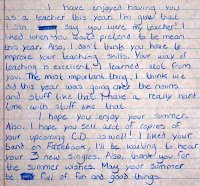 I have enjoyed having you
as a teacher this year. I'm glad that
I can say you were my teacher! I
liked when you would pretend to be mean
this year. Also, I don't think you have to
improve your teaching skills. Your way of
teaching is excellent! I learned alot from
you. The most important thing, I think we
did this year was going over the nouns
and stuff like that. I have a really hard
time with stuff like that.
I hope you enjoy your summer.
Also, I hope you sell alot of copies of
your upcoming CD as well! I liked your
band on Facebook, I'll be waiting to hear
your 3 new singles. Also, thank you for
the summer wishes. May your summer
be full of fun and good things.